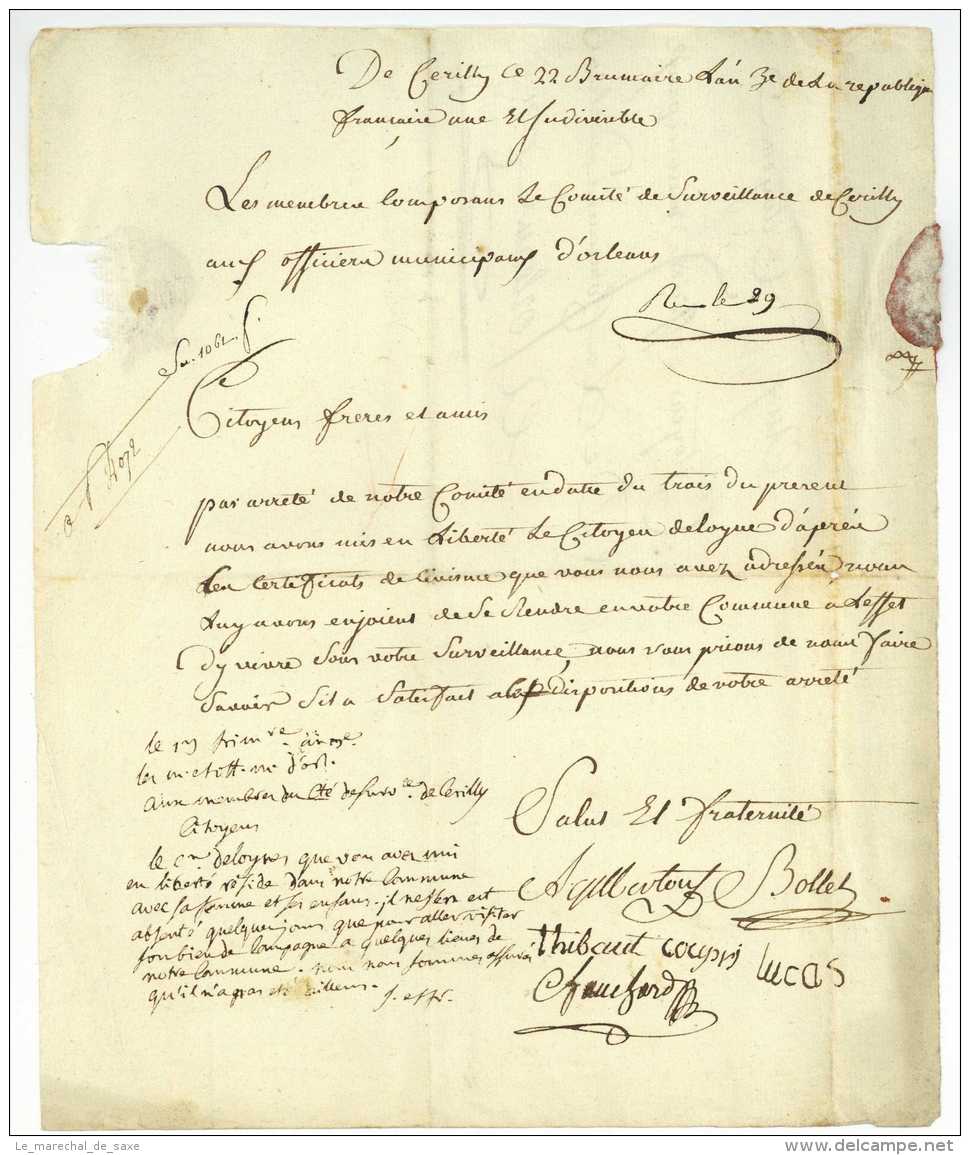 De Cerilly ce 22 Brumaire L'an 3e de La republique
francaise une Et Indivisible
Les membres Composans Le Comité de Surveillance de Cerilly
aux officiers municipaux d'orleans
le 29
Citoyens freres et amis
par arreté de notre Comité en datte du trois du present
nous avons mis en Liberté Le Citoyen deloyne d'apres
Les Certificats de Civisme que vous nous avez adressés nous
Luy avons enjoient de Se Rendre en votre Commune a Leffet
Dy vivre Sous votre Surveillance, nous vous prions de nous faire
Savoir Sil a Satisfait aux dispositions de votre arreté
Salut Et fraternité
Bollet
thibaut couppy lucas
4072
le frimre an 3e
les m. et off. m. d'orl.
aux membres du Cté de surv.ce de Cerilly
Citoyens
le Cen deloynes que vous avez mis
en liberté réside dans notre Commune
avec sa femme et ses enfans. il ne s'en est
absenté quelques jours que pour aller visiter
son bien de Campagne a quelques lieues de
notre Commune. nous nous sommes assurés
qu'il n'a pas été ailleurs.
Le_marechal_de_saxe
delcampe.net